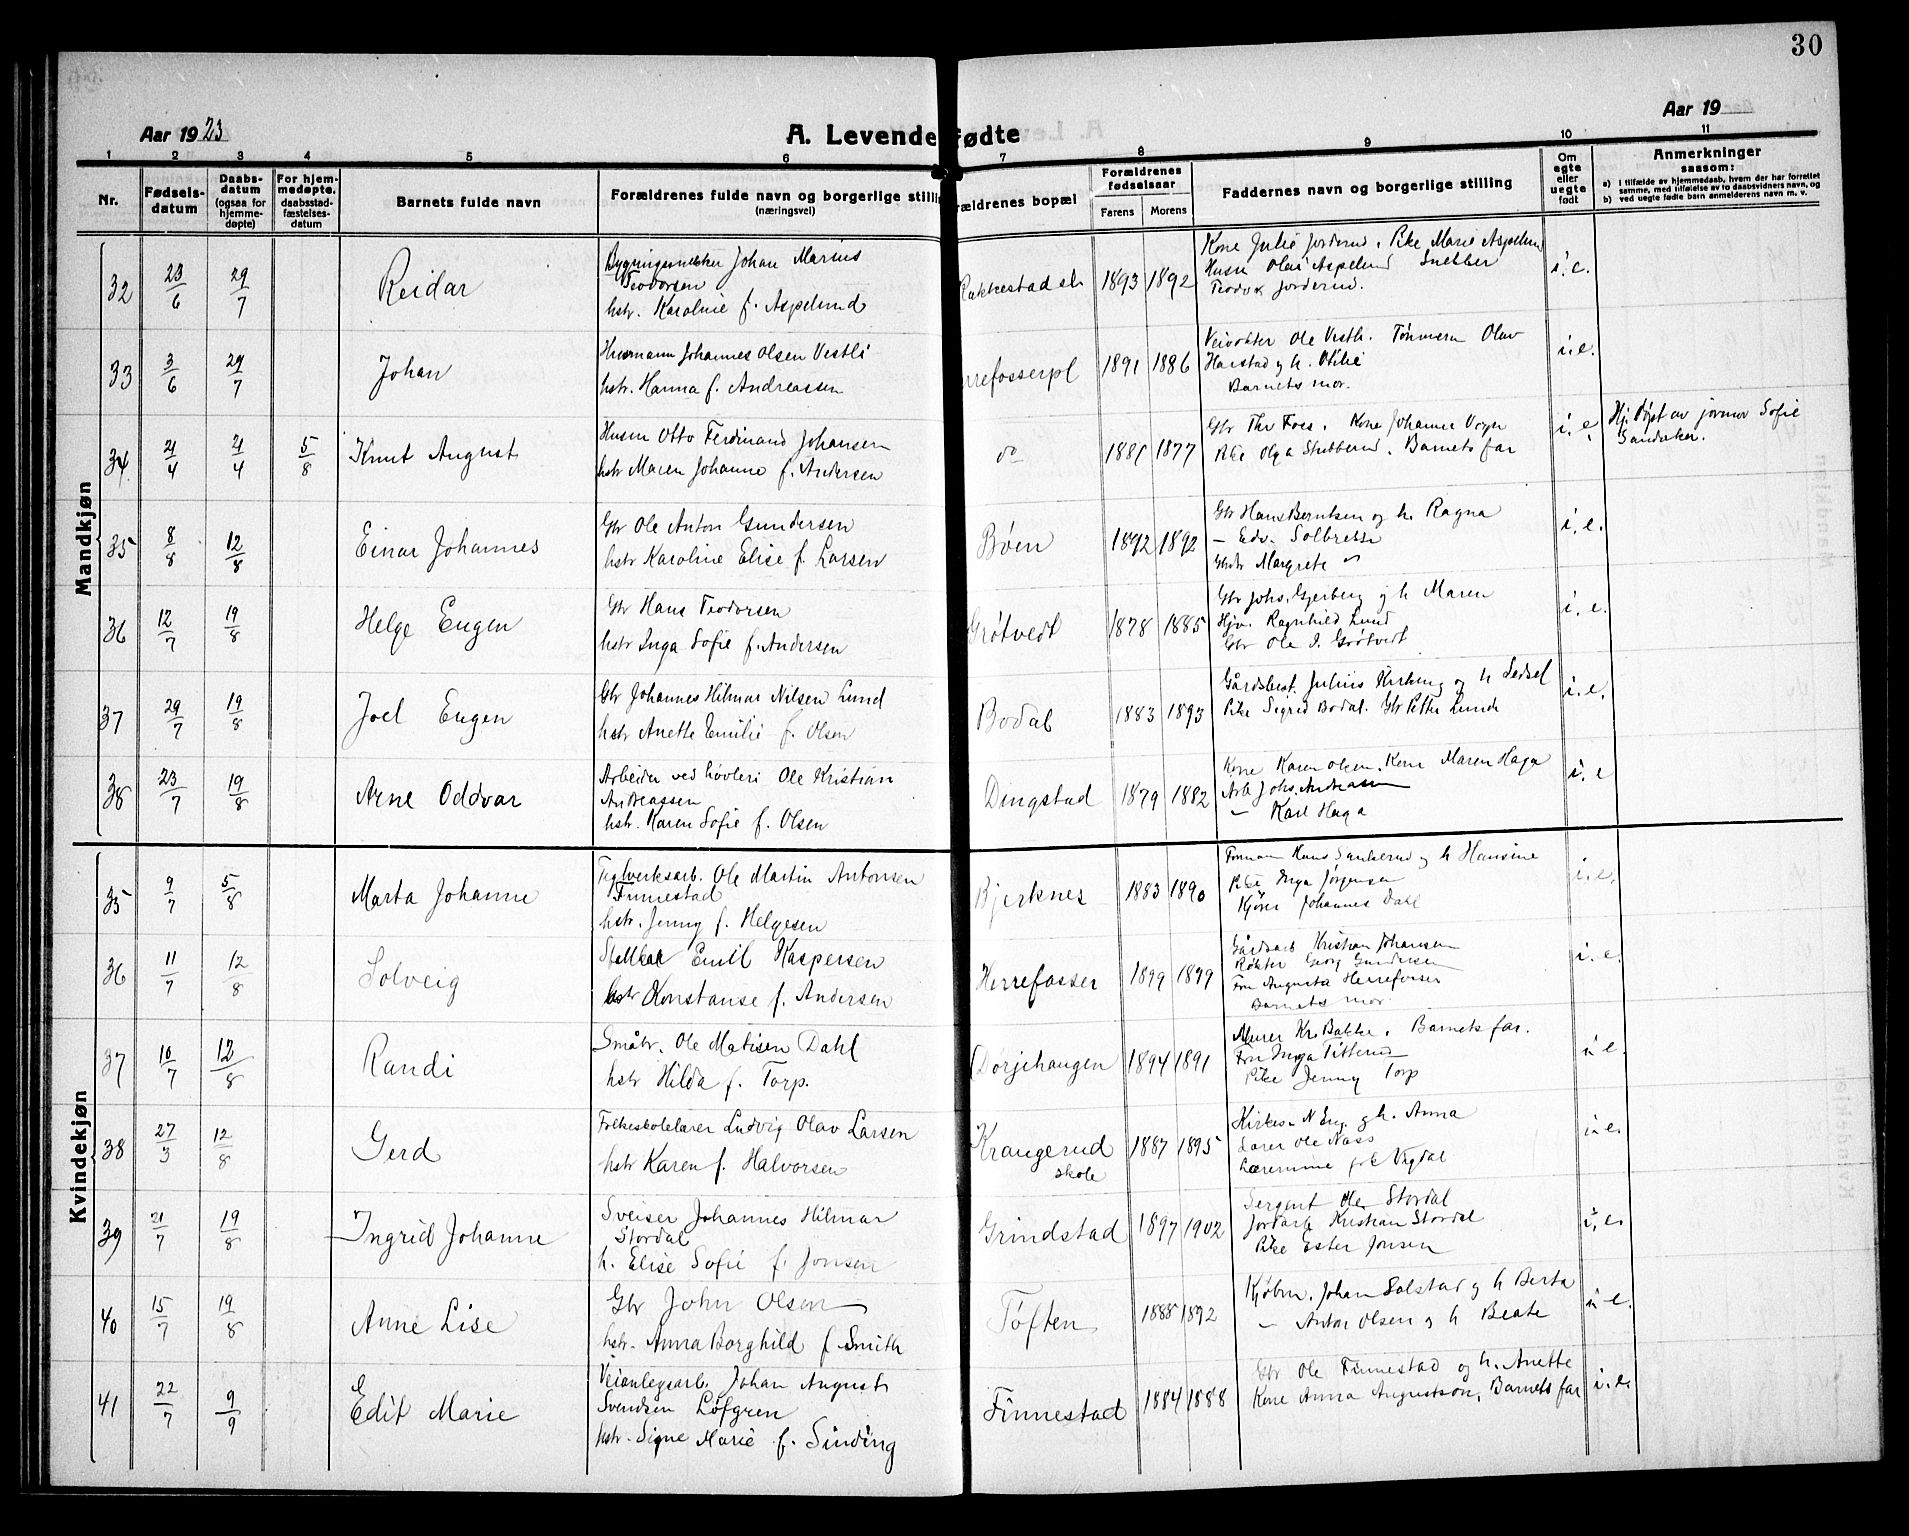 30
Aar 1923
A. Levende fødte
Aar 19
1 2 3 4 5 6 7 8 9 10 11
Nr.
Fødsels-
datum
Daabs-
datum
(ogsaa for
hjemme-
døpte)
For hjem-
medøpte.
daabsstad-
fæstelses-
datum
Barnets fulde navn
Forældrenes fulde navn og borgerlige stilli
(næringsvei)
rældrenes bopæl
Forældrenes
fødselsaar
Farens Morens
Faddernes navn og borgerlige stilling
Om
egte
eller
uegte
født
Anmerkninger
saasom:
a) i tilfælde av hjemmedaab, hvem der har forrettet
samme, med tilføielse av to daabsvidners navn, og
b) ved uegte fødte barn anmelderens navn m. v.
Mandkjøn
32 23/6 29/7 Reidar
Johan Marius
Teodorsen
hstr. Karoline f. Aspelund
Rakkestad st. 1893 1892
Kone Julie Jorderud. Pike Marie Aspelund
Husm Olai Aspelund Snekker
Teodor Jorderud.
i. e.
33 3/6 29/7 Johan
Husmann Johannes Olsen Vestli
hstr. Hanna f. Andreassen
rrefosserpl 1891 1886
Veivokter Ole Vestli. Olav
Harstad og h. Otilie
Barnets mor.
i. e.
34 21/4 21/4 5/8 Knut August
Husm Otto Ferdinand Johansen
hstr Maren Johanne f. Andersen
do 1877
Gbr Thv Foss. Kone Johanne
Pike Olga Stubberud. Barnets far
i. e.
Hj. døpt av jormor Sofie
Sandaker.
35 8/8 12/8 Einar Johannes
Gbr Ole Anton Gundersen
hstr Karoline Elise f. Larsen
Bøen 1892 1892
Gbr Hans Berntsen og h. Ragna
— Edv.
Margrete
i. e.
36 12/7 19/8 Helge Eugen
Gbr Hans Teodorsen
hstr Inga Sofie f. Andersen
Grøtvedt 1878 1885
Gbr Johs. Gjerberg og h Maren
Hjv. Ragnhild Lund
Gbr Ole I. Grøtvedt
i. e.
37 29/7 19/8 Joel Eugen
Gbr Johannes Hilmar Nilsen Lund
hstr Anette Emilie f. Olsen
Bodal 1883 1893
Gårdsbest. Julius og h Sedsel
Pike Sigrid Bodal. Gbr Petter Lunde
i. e.
38 23/7 19/8 Arne Oddvar
Arbeider ved høvleri Ole Kristian
Andreassen
hstr. Karen Sofie f. Olsen
Dingstad 1879 1882
Kone Karen Olsen. Kone Maren Haga
Arb Johs. Andreassen
— Karl Haga
i. e
Kvindekjøn
35 9/7 5/8 Marta Johanne
Teglverksarb. Ole Martin Antonsen
Finnestad
hstr. Jenny f. Helgesen
Bjerknes 1883 1890
Hans og h Hansine
Pike Inga Jørgensen
Kjører Johannes Dahl
i. e.
36 11/7 12/8 Solveig
Emil Kaspersen
hstr Konstanse f. Andersen
Herrefosser 1899 1899
Gårdsarb Kristian Johansen
Røkter Georg Gundersen
Fru Augusta Herrefosser
Barnets mor
i. e.
37 10/7 12/8 Randi
Småbr. Ole Matisen Dahl
hstr Hilda f. Torp.
Dørjehaugen 1894 1891
Murer Kr. Bakke. Barnets far.
Fru Inga Titterud
Pike Jenny Torp
u e.
38 27/3 12/8 Gerd
Folkeskolelærer Ludvig Olav Larsen
hstr Karen f. Halvorsen
Krangerud
skole 1887 1895
Kirkes. N Eng og h. Anna
Lærer Ole Næss
Lærerinne frk Vigdal
i. e.
39 21/7 19/8 Ingrid Johanne
Sveiser Johannes Hilmar
Stordal
h. Elise Sofie f. Jonsen
Grindstad 1897 1902
Sergent Ole Stordal
Jordarb Kristian Stordal
Pike Ester Jonsen
i. e.
40 15/7 19/8 Anne Lise
Gbr John Olsen
hstr. Anna Borghild f Smith
Tøften 1885 1892
Kjøbm. Johan Solstad og h Berta
— Anton Olsen og h Beate
i. e.
41 22/7 9/9 Edit Marie
Veianlegsarb. Johan August
Svendsen Løfgren
hstr. Signe Marie f. Sinding
Finnestad 1884 1888
Gbr Ole Finnestad og h. Anette
Kone Anna Augustson, Barnets far
i. e.